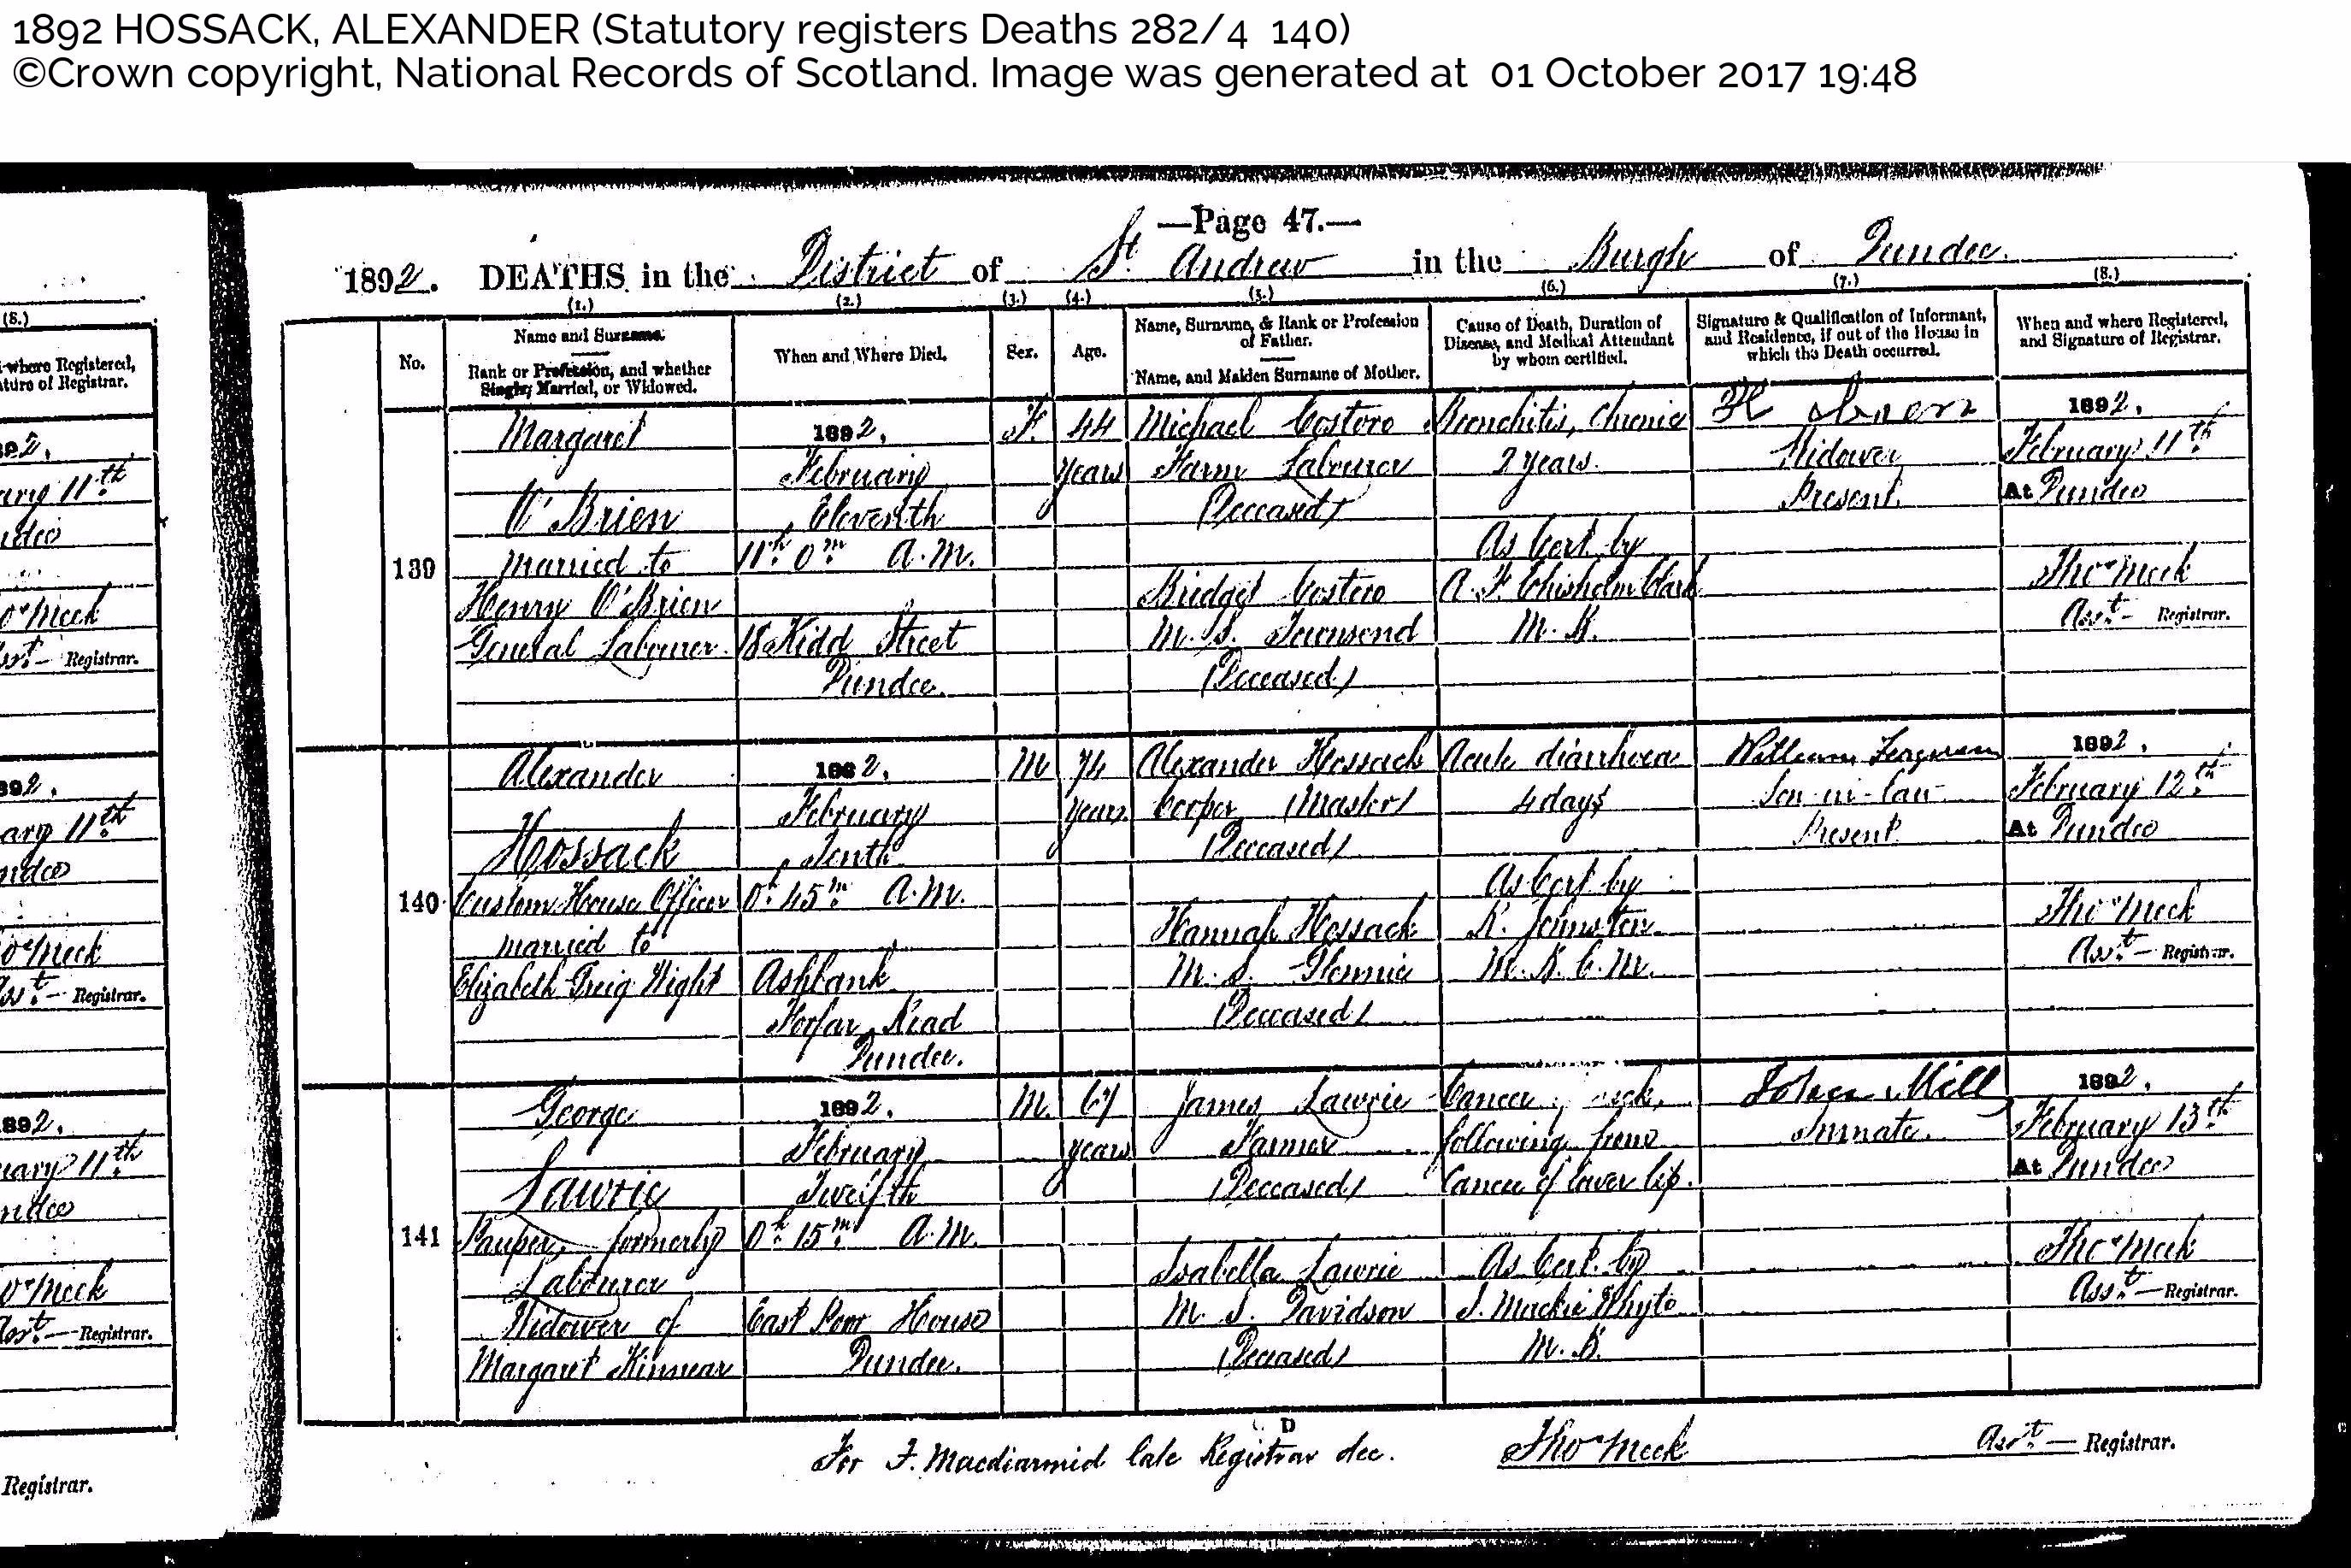 1892 HOSSACK, ALEXANDER (Statutory registers Deaths 282/4 140)
©Crown copyright, National Records of Scotland. Image was generated at 01 October 2017 19:48
—Page 47.—
1892. DEATHS in the District of St. Andrew in the Burgh of Dundee.
(1.) (2.) (3.) (4.) (5.) (6.) (7.) (8.)
No.
Name and Surname.
Rank or Profession, and whether
Single, Married, or Widowed.
When and Where Died.
Sex.
Age.
Name, Surname, & Rank or Profession
of Father.
Name, and Maiden Surname of Mother.
Cause of Death, Duration of
Disease, and Medical Attendant
by whom certified.
Signature & Qualification of Informant,
and Residence, if out of the House in
which the Death occurred.
When and where Registered,
and Signature of Registrar.
139
Margaret
O'Brien
Married to
Henry O'Brien
General Labourer
1892,
February
Eleventh
11h. 0m. A.M.
18 Kidd Street
Dundee.
F.
44
years
Michael Costero
Farm Labourer
(Deceased)
Bridget Costero
M.S. Townsend
(Deceased)
Bronchitis, Chronic
2 years.
As Cert. by
A. F. Chisholm Clark
M.B.
Widower
Present.
1892,
February 11th
At Dundee
Thos Meek
Asst. Registrar.
140
Alexander
Hossack
Custom House Officer
married to
Elizabeth Greig Wight
1892,
February
Tenth
0h. 45m. A.M.
Ashbank
Forfar Road
Dundee.
M
74
years.
Alexander Hossack
Cooper (Master)
(Deceased)
Hannah Hossack
M.S. Glennie
(Deceased)
Acute diarrhoea
4 days
As Cert. by
R. Johnston
M.B. C.M.
William Ferguson
Son-in-law
Present.
1892,
February 12th
At Dundee
Thos Meek
Asst. Registrar.
141
George
Lawrie
Pauper, formerly
Labourer
Widower of
Margaret Kinnear
1892,
February
Twelfth
0h. 15m. A.M.
East Poor House
Dundee.
M.
67
years
James Lawrie
Farmer
(Deceased)
Isabella Lawrie
M.S. Davidson
(Deceased)
Cancer neck,
following from
Cancer of lower lip.
As Cert. by
J. Mackie Whyte
M.B.
John Mill
Inmate.
1892,
February 13th
At Dundee
Thos Meek
Asst. Registrar.
D
For F. Macdiarmid late Registrar dec. Thos Meek Asst. Registrar.